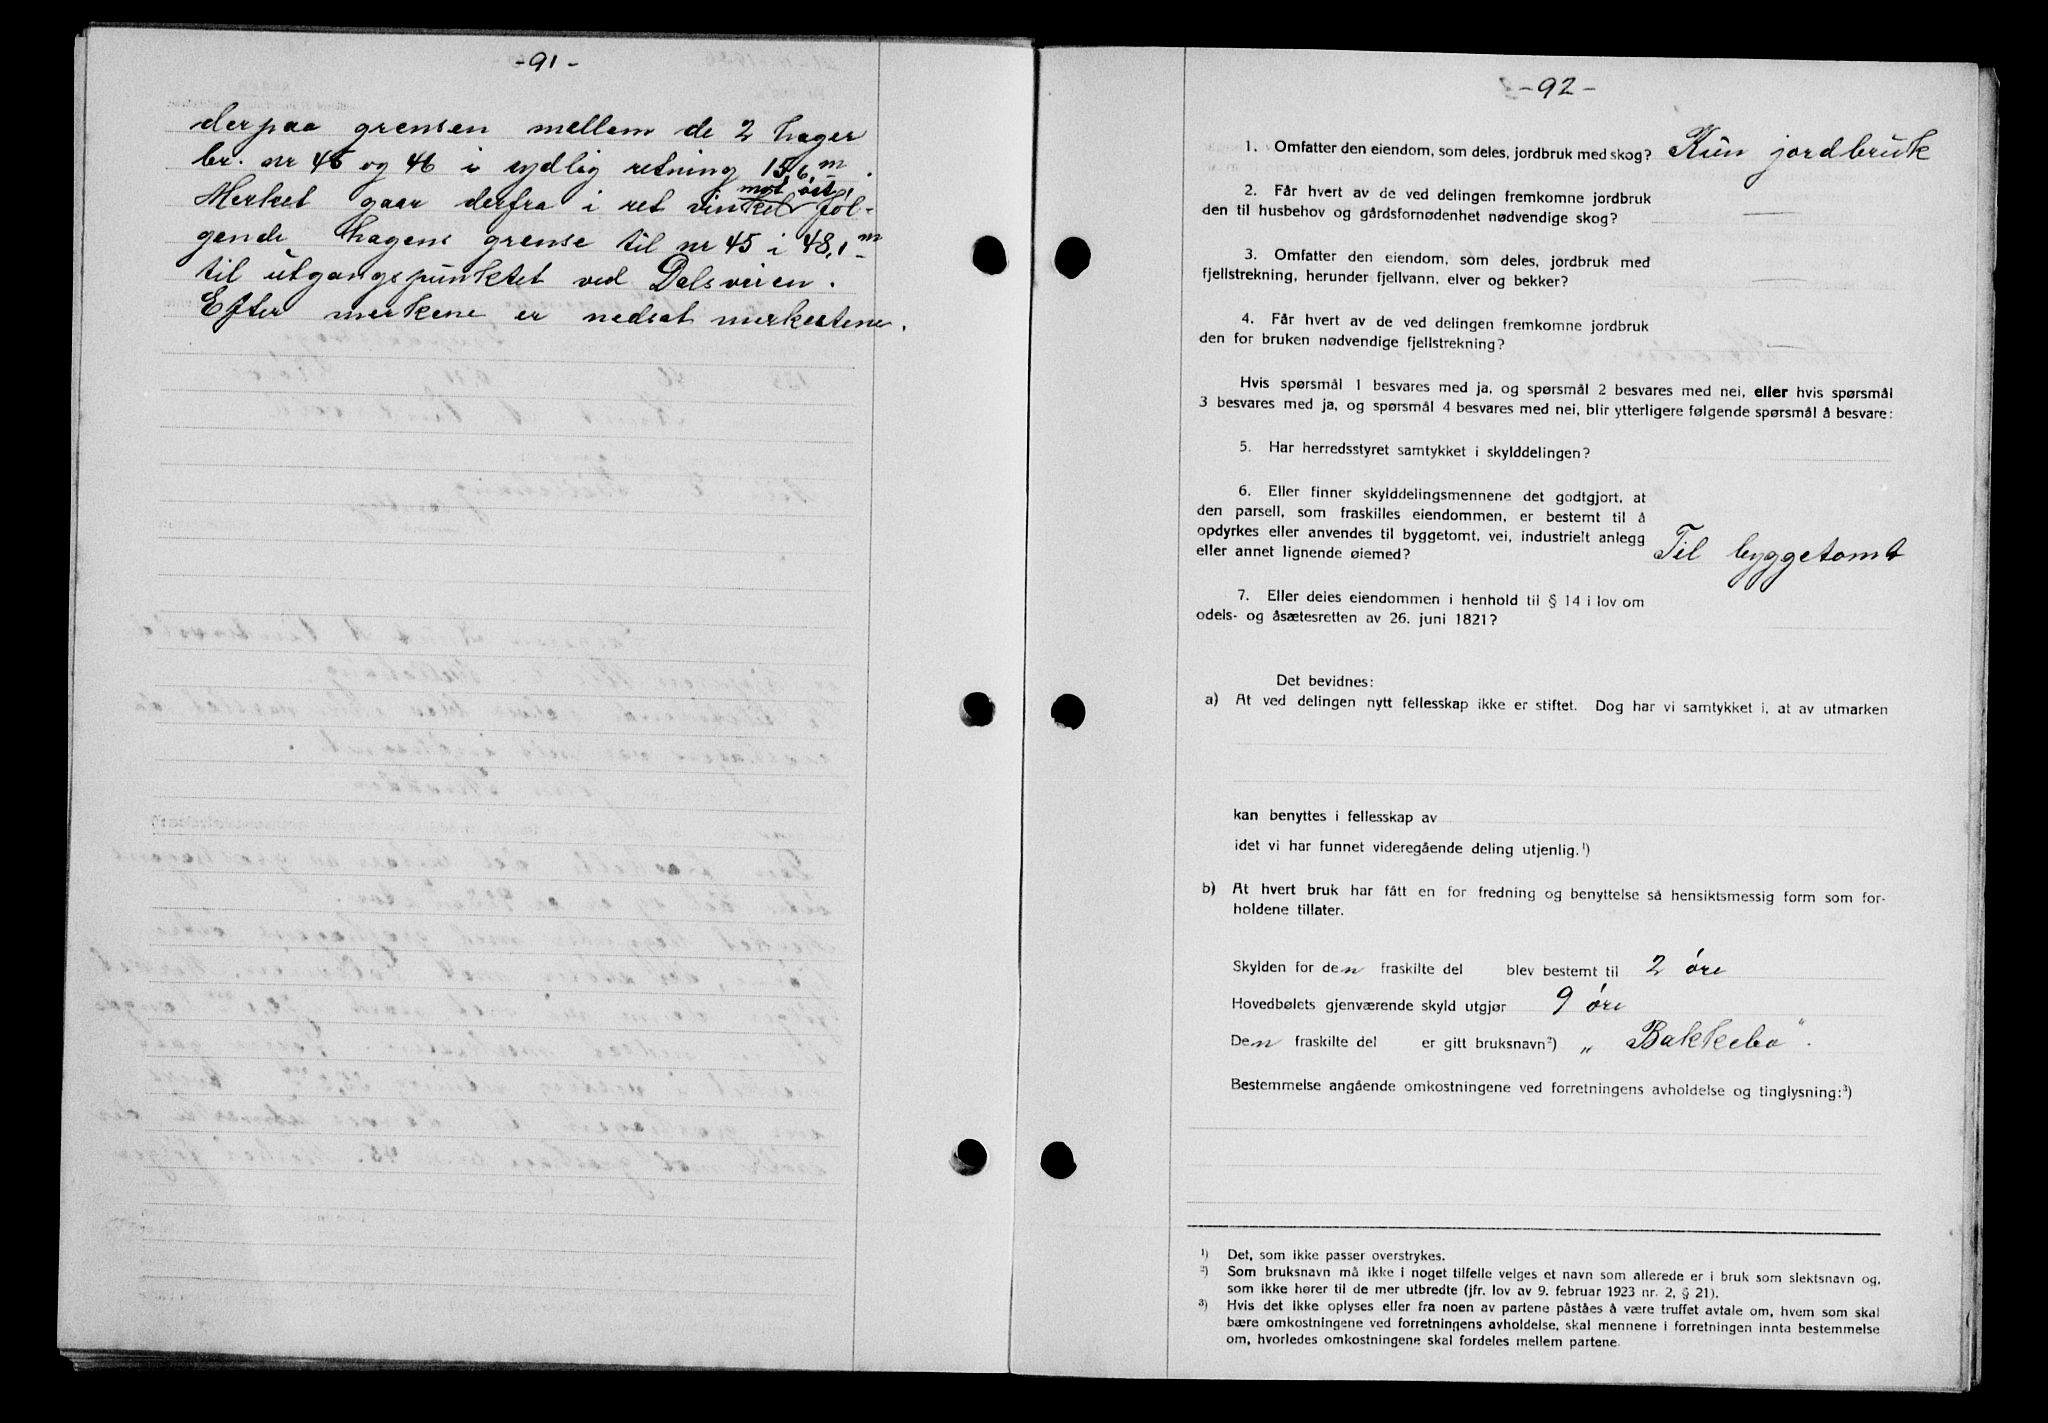 -91-
derpaa grensen mellem de 2 hager
br. nr 45 og 46 i sydlig retning 15,6 m.
Merket gaar derfra i ret vinkel mot øst, føl-
gende hagens grense til nr 45 i 48,1 m
til utgangspunktet ved Dalsveien.
Efter merkene er nedsat merkestene.
-92-
1. Omfatter den eiendom, som deles, jordbruk med skog? Kun jordbruk
2. Får hvert av de ved delingen fremkomne jordbruk
den til husbehov og gårdsfornødenhet nødvendige skog? —
3. Omfatter den eiendom, som deles, jordbruk med
fjellstrekning, herunder fjellvann, elver og bekker? —
4. Får hvert av de ved delingen fremkomne jordbruk
den for bruken nødvendige fjellstrekning? —
Hvis spørsmål 1 besvares med ja, og spørsmål 2 besvares med nei, eller hvis spørsmål
3 besvares med ja, og spørsmål 4 besvares med nei, blir ytterligere følgende spørsmål å besvare:
5. Har herredsstyret samtykket i skylddelingen?
6. Eller finner skylddelingsmennene det godtgjort, at
den parsell, som fraskilles eiendommen, er bestemt til å
opdyrkes eller anvendes til byggetomt, vei, industrielt anlegg
eller annet lignende øiemed? Til byggetomt
7. Eller deles eiendommen i henhold til § 14 i lov om
odels- og åsætesretten av 26. juni 1821?
Det bevidnes:
a) At ved delingen nytt fellesskap ikke er stiftet. Dog har vi samtykket i, at av utmarken
kan benyttes i fellesskap av
idet vi har funnet videregående deling utjenlig.¹)
b) At hvert bruk har fått en for fredning og benyttelse så hensiktsmessig form som for-
holdene tillater.
Skylden for den fraskilte del blev bestemt til 2 øre
Hovedbølets gjenværende skyld utgjør 9 øre
Den fraskilte del er gitt bruksnavn²) „Bakkebo".
Bestemmelse angående omkostningene ved forretningens avholdelse og tinglysning:³)
¹) Det, som ikke passer overstrykes.
²) Som bruksnavn må ikke i noget tilfelle velges et navn som allerede er i bruk som slektsnavn og,
som ikke hører til de mer utbredte (jfr. lov av 9. februar 1923 nr. 2, § 21).
³) Hvis det ikke oplyses eller fra noen av partene påståes å være truffet avtale om, hvem som skal
bære omkostningene ved forretningens avholdelse, skal mennene i forretningen innta bestemmelse
om, hvorledes omkostningene skal fordeles mellem partene.